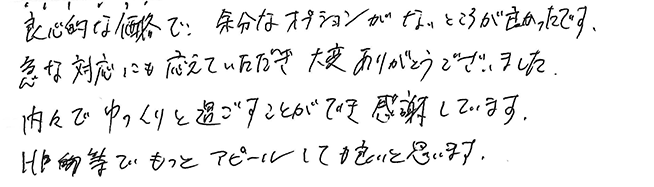 良心的な価格で、余分なオプションがないところが良かったです。
急な対応にも応えていただき大変ありがとうございました。
内々でゆっくりと過ごすことができ感謝しています。
HP等でもっとアピールしても良いと思います。